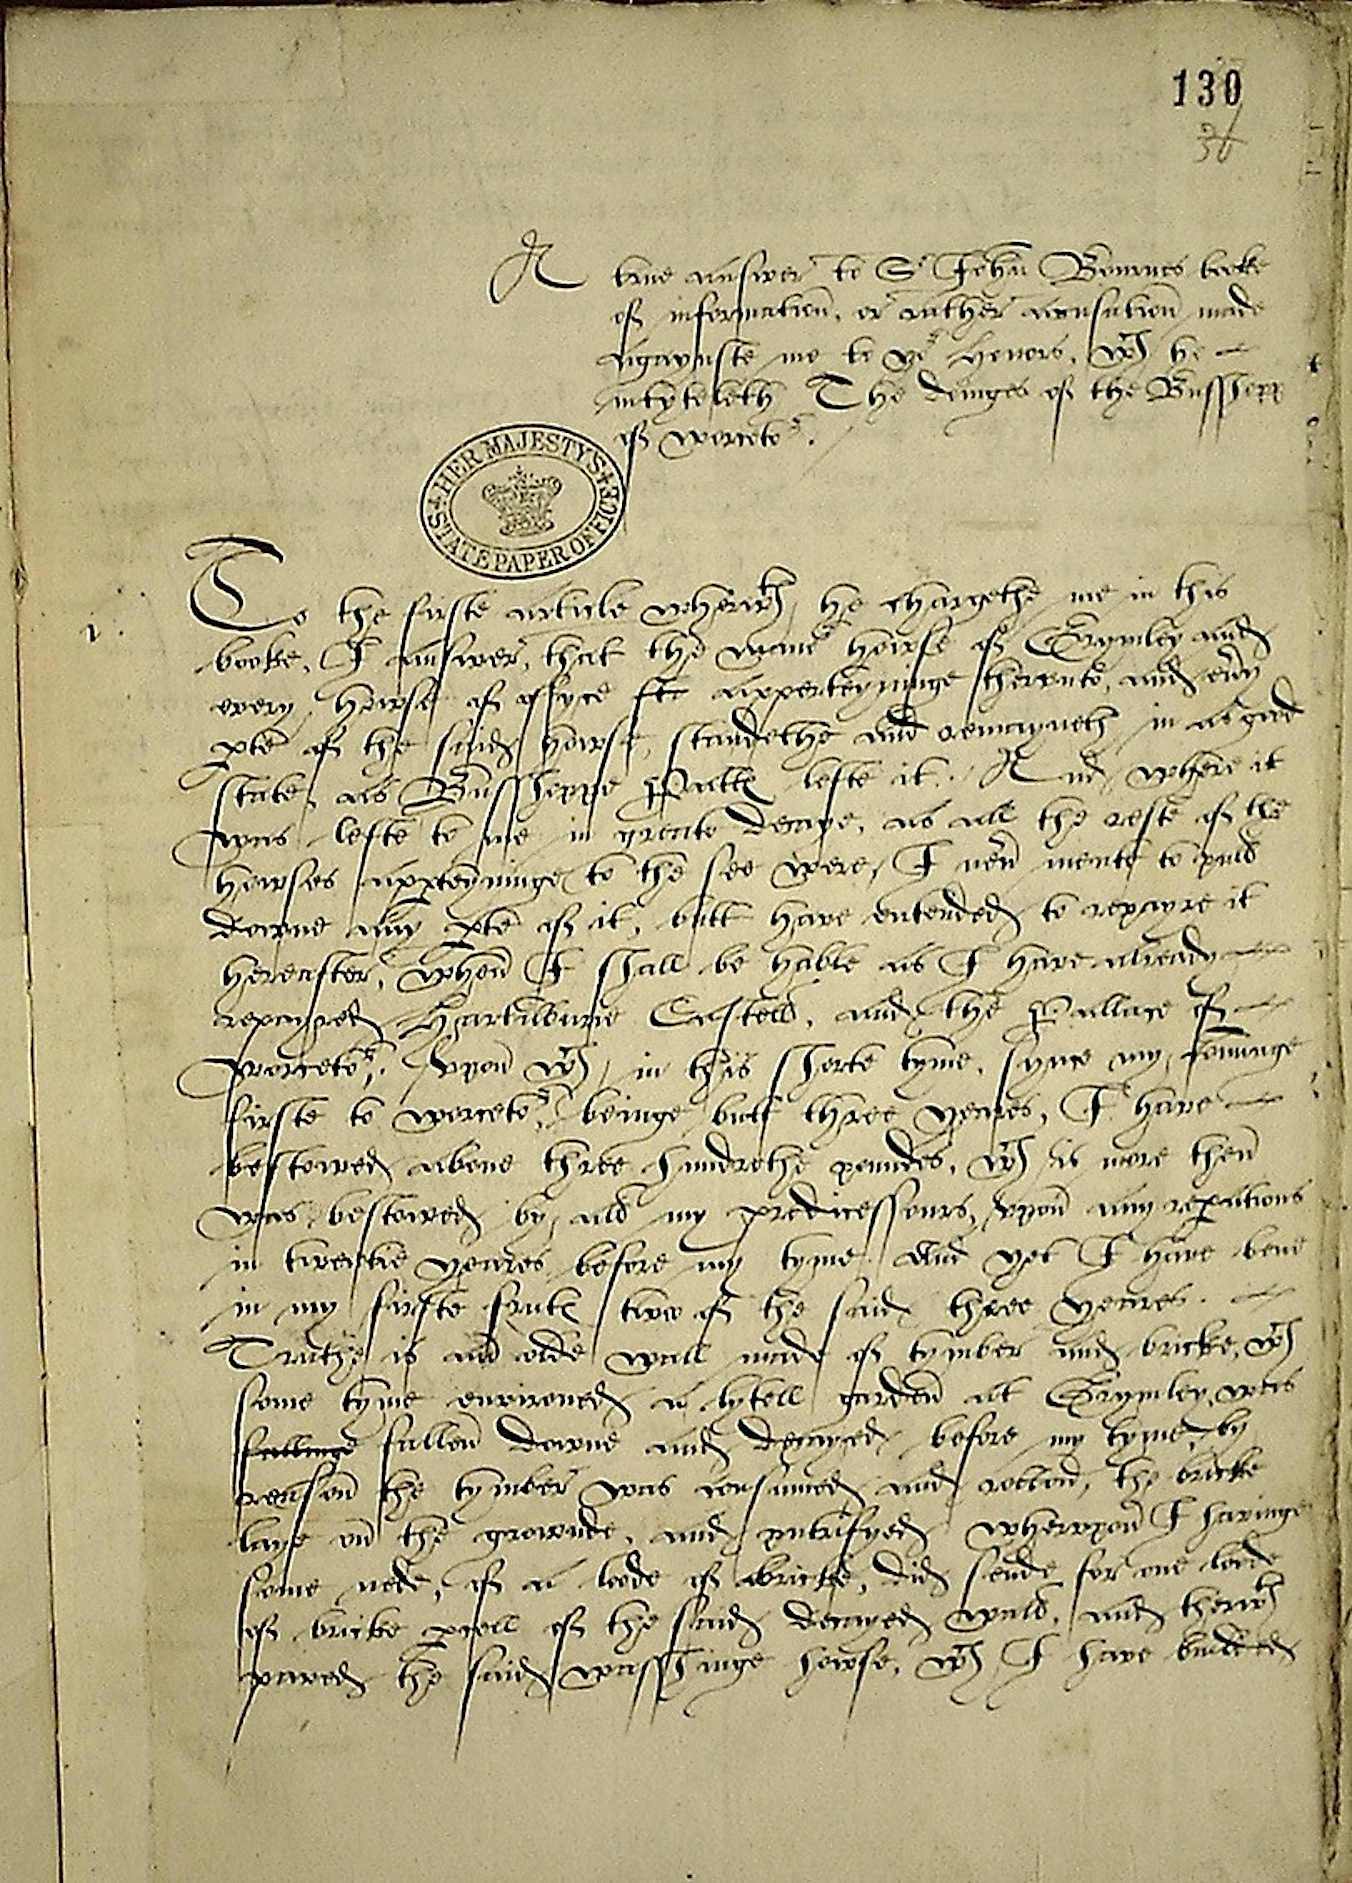 130
36
A true answer to Sr John Bournes booke
of information, or rather accusation made
agaynste me to yor honors, wch he
intyteleth The doinges of the Busshopp
of worcetor.
HER MAJESTY'S STATE PAPER OFFICE
1. To the firste article wherwth he chargethe me in this
booke, I answer, that the manr howse of Grymley and
every howse of offyce apperteyninge therunto, and every
pte of the said howse, standethe and remayneth in as good
state, as Busshoppe Pates lefte it. And where it
was lefte to me in greate decaye, as all the reste of the
howses apperteyninge to the see were, I never mente to pull
downe any pte of it, butt have entended to repayre it
hereafter, when I shall be hable as I have already
repayred Hartilburie Castell, and the Pallace of
Worcetor. Upon wch in this shorte tyme, synce my comminge
firste to worcetor, beinge butt three yeares, I have
bestowed above three hundrethe poundes, wch is more then
was bestowed by all my predicessours, upon any repations
in twentie yeares before my tyme. And yet I have bene
in my firste frutes two of the said three yeares.
Truthe is an olde wall made of tymber and bricke, wch
some tyme environed a lytell garden at Grymley, was
fallinge fallen downe and decayed before my tyme, by
reason the tymber was consumed and rotton, the bricke
laye on the grownde, and putrifyed wherupon I havinge
some nede, of a loode of bricke, did sende for one loode
of bricke pcell of the said decayed wall, and therwth
paved the said wasshinge howse, wch I have builded